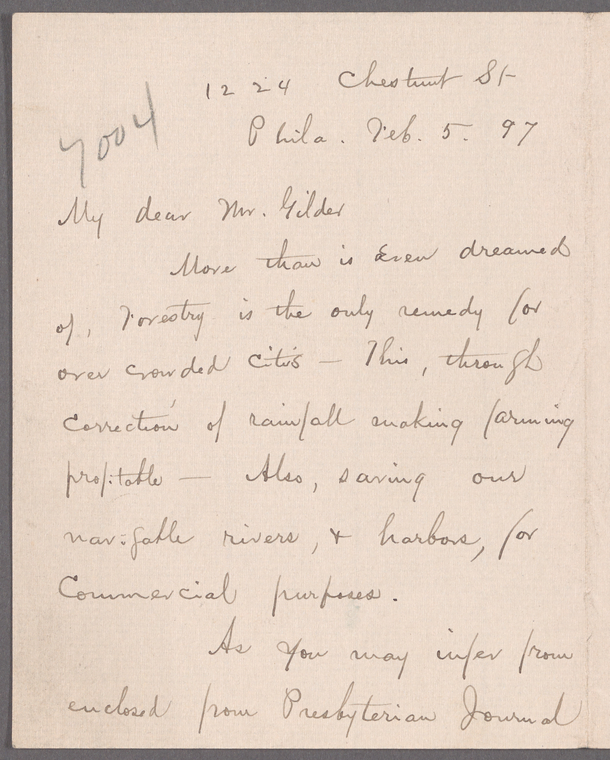 1224 Chestnut St
7004
Phila. Feb. 5. 97
My dear Mr. Gilder
More than is Even dreamed
of, Forestry is the only remedy for
over crowded citis — This, through
Correction of rainfall making farming
profitable — Also, saving our
navigable rivers, & harbors, for
Commercial purposes.
As you may infer from
enclosed from Presbyterian Journal